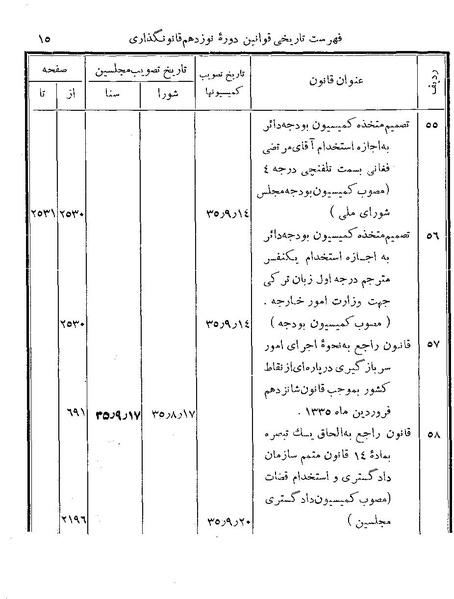 فهرست تاریخی قوانین دورهٔ نوزدهم قانونگذاری ۱۵
ردیف عنوان قانون تاریخ تصویب کمیسیونها تاریخ تصویب مجلسین صفحه
شورا سنا از تا
۵۵ تصمیم متخذه کمیسیون بودجه دائر
به اجازه استخدام آقای مرتضی
فغانی بسمت تلفنچی درجه ۴
(مصوب کمیسیون بودجه مجلس
شورای ملی) ۳۵٫۹٫۱۴ ۲۵۳۰ ۲۵۳۱
۵۶ تصمیم متخذه کمیسیون بودجه دائر
به اجازه استخدام یکنفر
مترجم درجه اول زبان ترکی
جهت وزارت امور خارجه .
(مصوب کمیسیون بودجه) ۳۵٫۹٫۱۴ ۲۵۳۰
۵۷ قانون راجع به نحوهٔ اجرای امور
سربازگیری درپاره‌ای از نقاط
کشور بموجب قانون شانزدهم
فروردین ماه ۱۳۳۵ . ۳۵٫۸٫۱۷ ۳۵٫۹٫۱۷ ۶۹۱
۵۸ قانون راجع به الحاق یک تبصره
بمادهٔ ۱۴ قانون متمم سازمان
دادگستری و استخدام قضات
(مصوب کمیسیون دادگستری
مجلسین) ۳۵٫۹٫۲۰ ۲۱۹۶